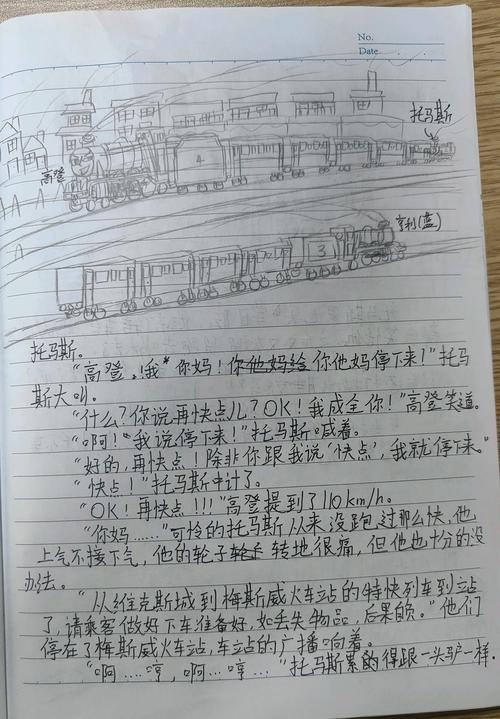 No.
Date
托马斯
高登
4
亨利(蓝)
3
托马斯。
"高登。!我*你妈!你他妈给你他妈停下来!"托马
斯大叫。
"什么?你说再快点儿?OK!我成全你!"高登笑道。
"啊!"我说停下来!"托马斯喊着。
"好的,再快点!除非你跟我说‘快点’,我就停下来。"
"快点!"托马斯中计了。
"OK!再快点!!!"高登提到了110km/h。
"你妈……"可怜的托马斯从来没跑过那么快,他
上气不接下气,他的轮子转地很痛,但他也十分的没
办法。
"从维克斯城到梅斯威火车站的特快列车到站
了,请乘客做好下车准备好,如丢失物品,后果自负。"他们
停在了梅斯威火车站,车站的广播响着。
"啊……哼,啊…哼…"托马斯累的得跟一头驴一样.